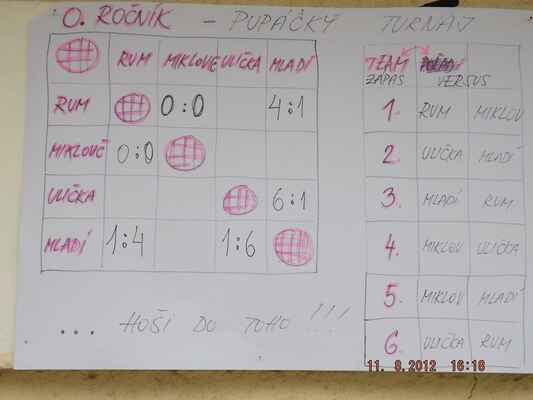 0. ROČNÍK - PUPÁČKY TURNAJ
RUM MIKLOVČ ULIČKA MLADÍ
RUM 0:0 4:1
MIKLOVČ 0:0
ULIČKA 6:1
MLADÍ 1:4 1:6
TEAM
ZÁPAS VERSUS
1. RUM MIKLOV
2. ULIČKA MLADÍ
3. MLADÍ RUM
4. MIKLOV ULIČKA
5. MIKLOV MLADÍ
6. ULIČKA RUM
... HOŠI DO TOHO !!!
11. 8.2012 16:16